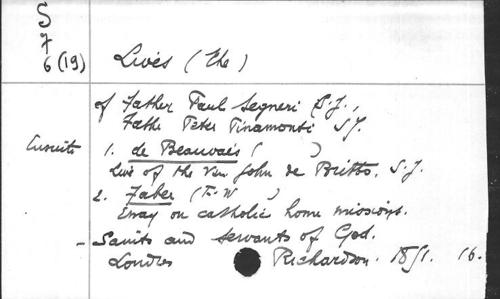 S
7
6 (19)
Lives (The)
of Father Paul Segneri S.J.,
Fathe Peter Pinamonti SJ.
1. de Beauvais ( )
Live of the Ven John de Britto, S.J.
2. Faber (F.W )
Essay on catholic home missions.
- Saints and servants of God.
Londres Richardson. 1851. 16.